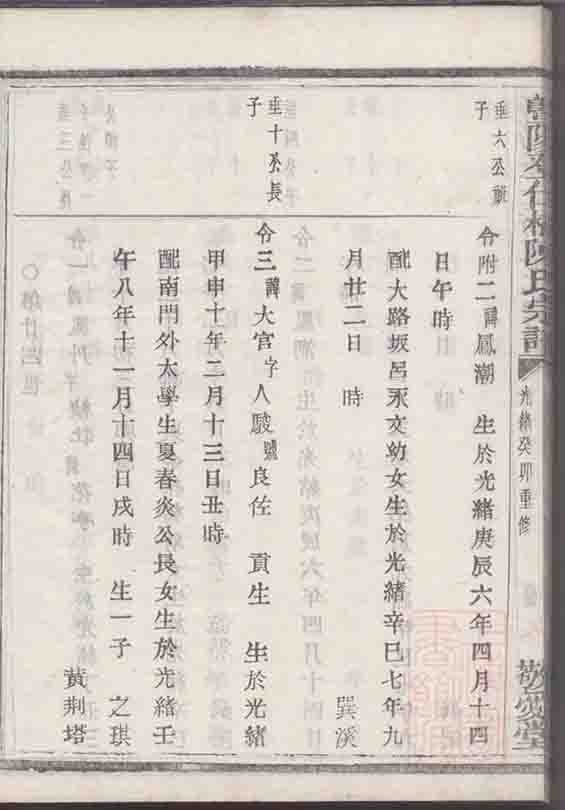 陳氏宗譜 光緒癸卯重修 敬愛堂
垂六公嗣
子
令附二諱鳳潮 生於光緒庚辰六年四月十四
日午時
配大路坂呂永文幼女生於光緒辛巳七年九
月廿二日 時 巽溪
垂十公長
子
令三諱大官字人駿號良佐 貢生 生於光緒
甲申十年二月十三日丑時
配南門外太學生夏春炎公長女生於光緒壬
午八年十一月十四日戌時 生一子 之琪
黃荆塔